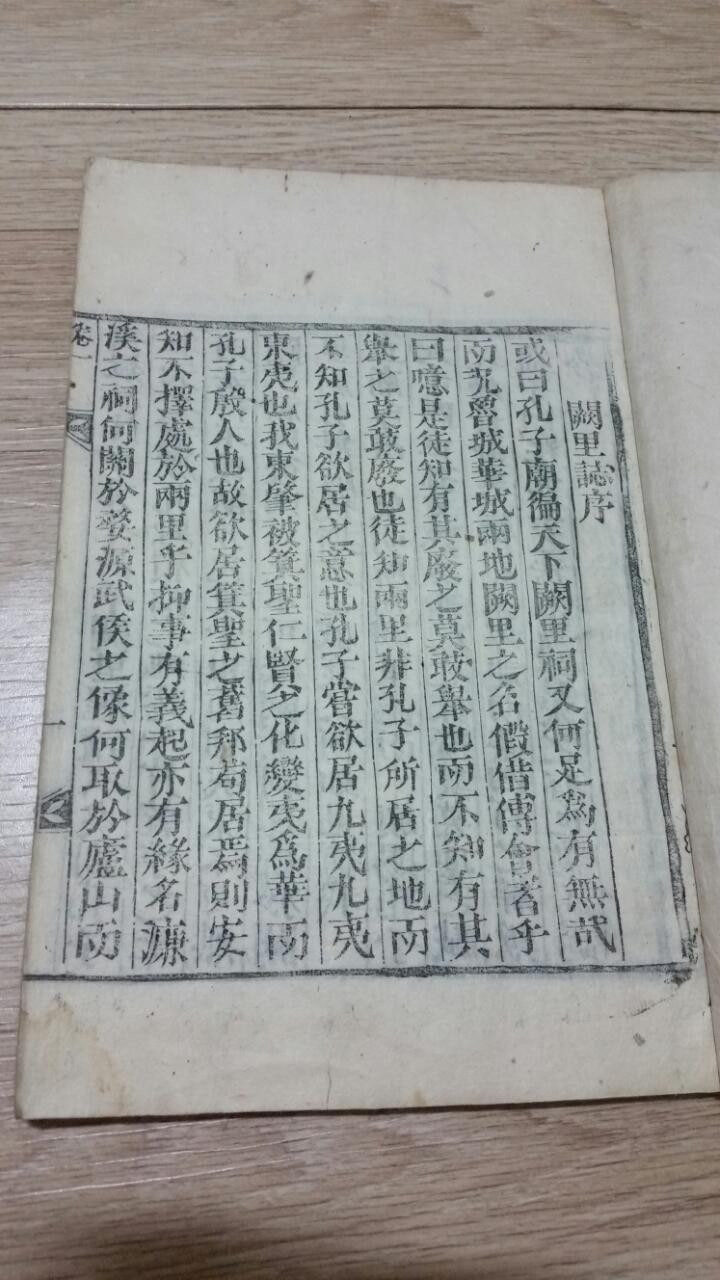 闕里誌序
或曰孔子廟徧天下闕里祠又何足爲有無哉
而况魯城華城兩地闕里之名假借傅會者乎
曰噫是徒知有其廢之莫敢舉也而不知有其
舉之莫敢廢也徒知兩里非孔子所居之地而
不知孔子欲居之意也孔子嘗欲居九夷九夷
東夷也我東肇被箕聖仁賢之化變夷爲華而
孔子殷人也故欲居箕聖之舊邦苟居焉則安
知不擇處於兩里乎抑事有義起亦有緣名濂
溪之祠何關於婺源武侯之像何取於廬山而
卷一
一